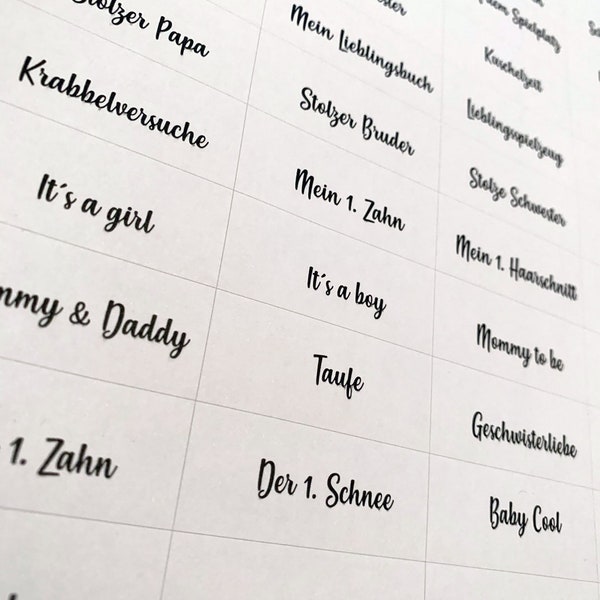 Stolzer Papa
Krabbelversuche
It's a girl
& Daddy
1. Zahn
Mein Lieblingsbuch
Stolzer Bruder
Mein 1. Zahn
It's a boy
Taufe
Der 1. Schnee
Spielplatz
Kuschelzeit
Lieblingsspielzeug
Stolze Schwester
Mein 1. Haarschnitt
Mommy to be
Geschwisterliebe
Baby Cool